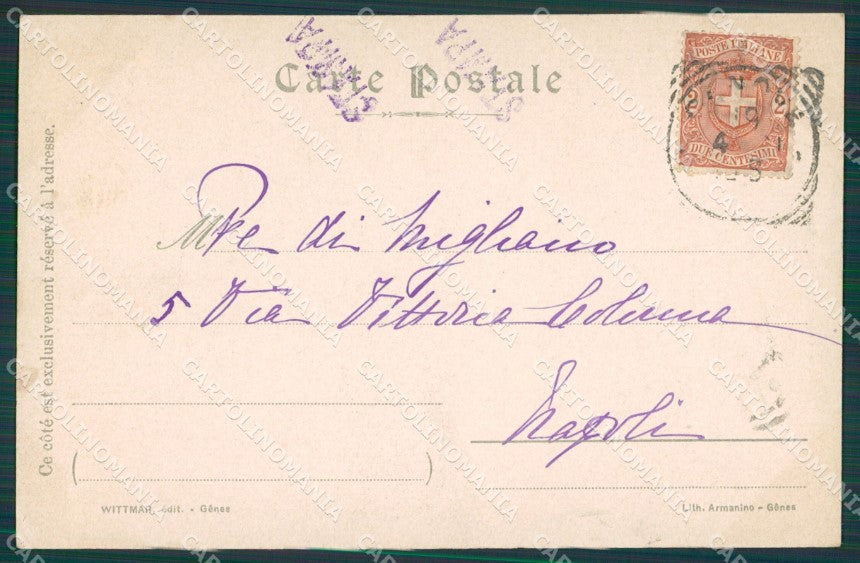 STAMPA
STAMPA
Carte Postale
POSTE ITALIANE
2 2
DUE CENTESIMI
Ce côté est exclusivement réservé à l'adresse.
M
Pce di Migliano
5 Via Vittoria Colonna
Napoli
WITTMAR, édit. - Gênes
Lith. Armanino - Gênes
CARTOLINOMANIA